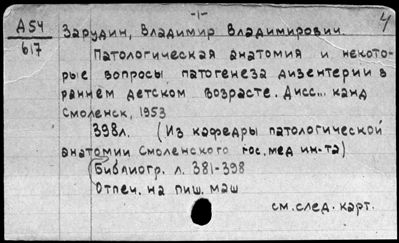 -1-
4
А54
617
Зарудин, Владимир Владимирович.
Патологическая анатомия и некото-
рые вопросы патогенеза дизентерии в
раннем детском возрасте. Дисс... канд
Смоленск, 1953
398л. (Из кафедры патологической
анатомии Смоленского гос. мед ин-та)
(Библиогр. л. 381-398
Отпеч. на пиш. маш
см. след. карт.